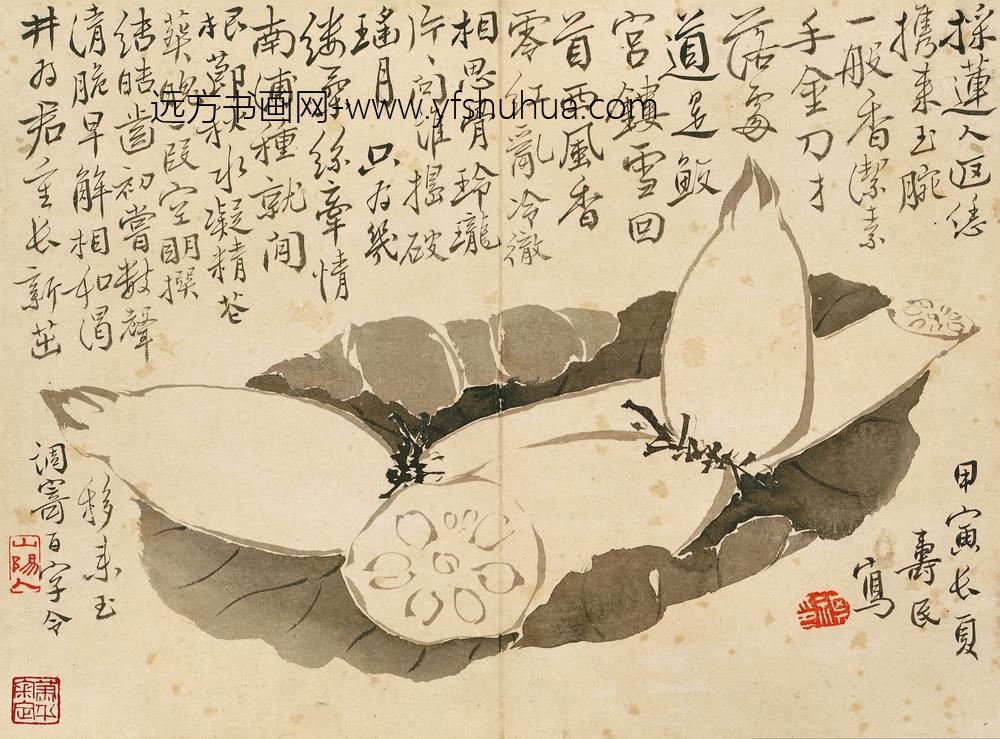 採蓮人返恁
携來玉腕
一般香潔素
手金刀才
落處
道是鮫
宮鏤雪回
首西風香
零紅亂冷徹
相思骨玲瓏
向誰搗破
瑤月只为幾
縷柔絲牽情
南浦種就閒
根秋水凝精
段空明撰
結皓齒初嘗數聲
清脆早解相如渴
移來玉
井为君重長新茁
調寄百字令
山陽人
甲寅長夏
壽民
寫
远方书画网-www.yfshuhua.com